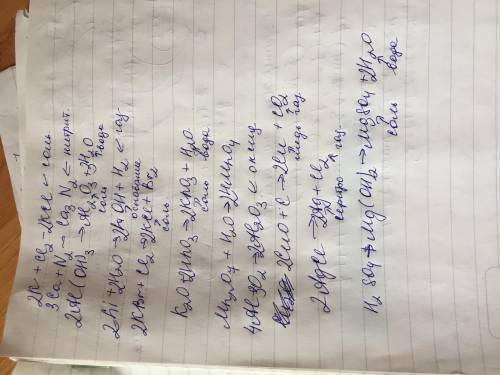 2K + Cl2 → 2KCl ← соль
3Ca + N2 → Ca3N2 ← нитрит.
2Al(OH)3 → Al2O3 + 3H2O
соль вода
2Li + 2H2O → 2LiOH + H2 ← газ
основание
2KBr + Cl2 → 2KCl + Br2
соль
K2O + 2HNO3 → 2KNO3 + H2O
соль вода
Mn2O7 + H2O → 2HMnO4
4Al + 3O2 → 2Al2O3 ← оксид
2CuO + C → 2Cu + CO2
медь газ
2AgCl → 2Ag + Cl2
серебро газ.
H2SO4 + Mg(OH)2 → MgSO4 + 2H2O
соль вода